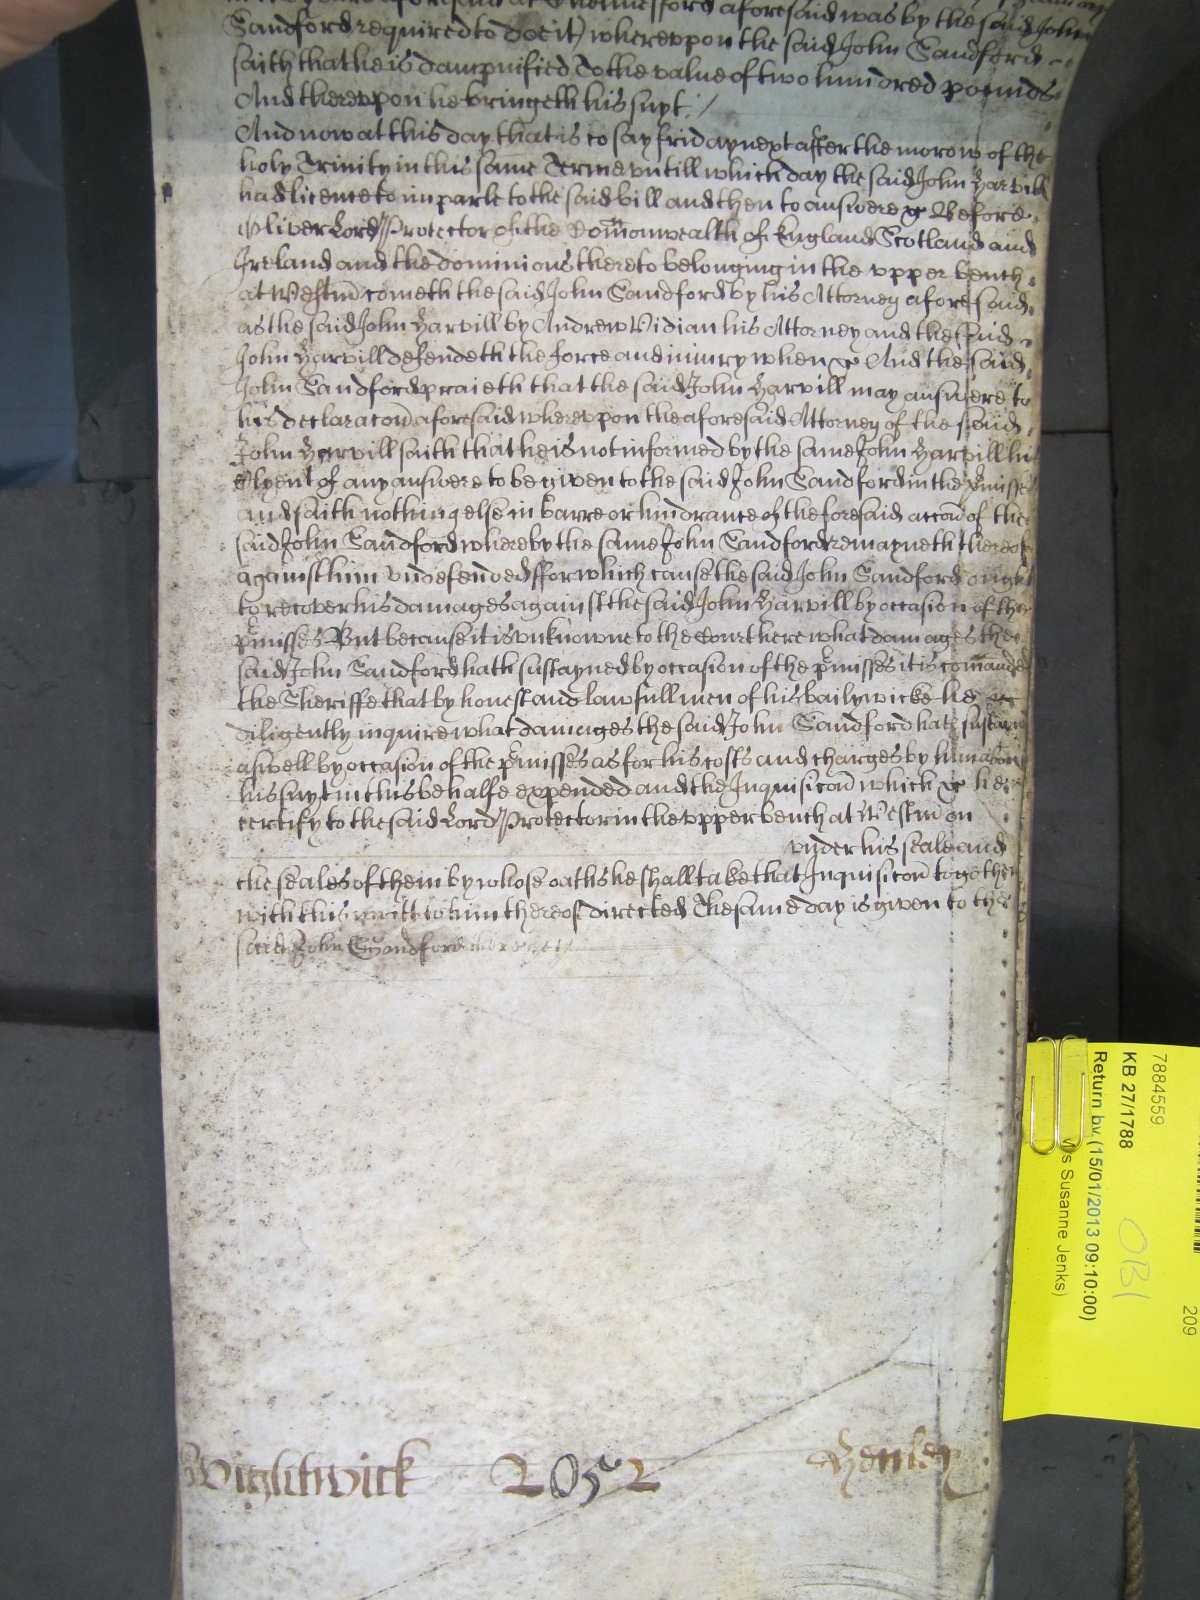 aforesaid at Chelmesford aforesaid was by the said John
Sandford required to doe it) wherevpon the said John Sandford
saith that he is dampnified To the value of two hundred pounds
And therevpon he bringeth his suyt /
And now at this day that is to say friday next after the morow of the
holy Trinity in this same Terme vntill which day the said John Harvill
had licence to imparle to the said bill and then to answere &c Before
Oliver Lord Protector of the Comonwealth of England Scotland and
Ireland and the dominions thereto belonging in the vpper bench
at Westm cometh the said John Sandford by his Attorney aforesaid
as the said John Harvill by Andrew Vidian his Attorney and the said
John Harvill defendeth the force and iniury when &c And the said
John Sandford praieth that the said John Harvill may answere to
his declaracon aforesaid wherevpon the aforesaid Attorney of the said
John Harvill saith that he is not informed by the same John Harvill his
Clyent of any answere to be given to the said John Sandford in the pmisses
and saith nothing else in barre or hindrance of the foresaid accon of the
said John Sandford whereby the same John Sandford remayneth thereof
against him vndefended ffor which cause the said John Sandford ought
to recover his damages against the said John Harvill by occasion of the
pmisses But because it is vnknowne to the Court here what damages the
said John Sandford hath sustayned by occasion of the pmisses it is comanded
the Sheriffe that by honest and lawfull men of his bailywicke he &c
diligently inquire what damages the said John Sandford hath sustayned
aswell by occasion of the pmisses as for his costs and charges by him about
his suyt in this behalfe expended and the Inquisicon which &c he
certify to the said Lord Protector in the vpper bench at Westm on
vnder his seale and
the seales of them by whose oaths he shall take that Inquisicon together
with this writt to him thereof directed The same day is given to the
said John Sandford
Wightwick 2052 Henley
7884559
KB 27/1788
Return by (15/01/2013 09:10:00)
Susanne Jenks)
OB1
209